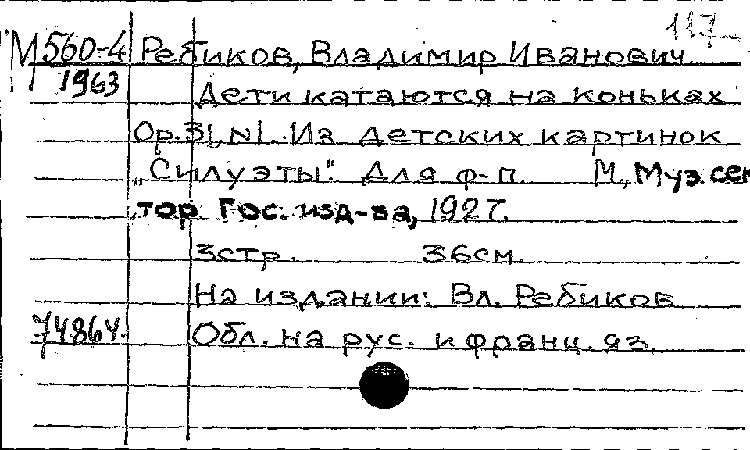 117
М 560-4 Ребиков, Владимир Иванович
1963
Дети катаются на коньках
Ор.31, N1. Из детских картинок
„Силуэты". Для ф-п. М., Муз. сек
тор Гос. изд-ва, 1927.
3стр. 36см.
На издании: Вл. Ребиков
74864. Обл. на рус. и франц. яз.